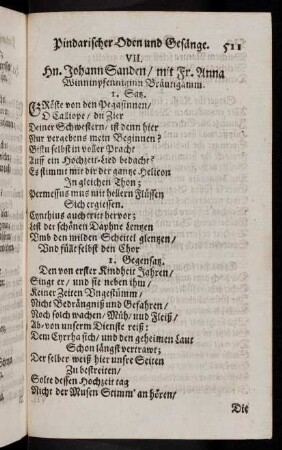 Pindarischer Oden und Gesänge. 511
VII.
Hn. Johann Sanden/ mit Fr. Anna
Winnenpfenniginn Bräutigamm.
1. Satz.
Größte von den Pegasinnen/
O Calliope/ du Zier
Deiner Schwestern/ ist denn hier
Nur vergebens mein Beginnen?
Bistu selbst in voller Pracht
Auff ein Hochzeit-Lied bedacht?
Es stimmt mit dir der gantze Helicon
In gleichen Thon;
Permessus mus mit hellern Flüssen
Sich ergiessen.
Cynthius auch trit hervor;
Lest der schönen Daphne Lentzen
Vmb den milden Scheitel glentzen/
Und füllt selbst den Chor
1. Gegensatz.
Den von erster Kindheit Jahren/
Singt er/ und sie neben ihm/
Keiner Zeiten Vngestümm/
Nicht Bedrängniß und Gefahren/
Noch solch wachen/ Müh/ und Fleiß/
Ab-von unserm Dienste reiß:
Dem Cyrrha sich/ und den geheimen Laut
Schon längst vertrawt;
Der selber weiß hier unsre Seiten
Zu bestreiten/
Solte dessen Hochzeit tag
Nicht der Musen Stimm' an hören/
Die